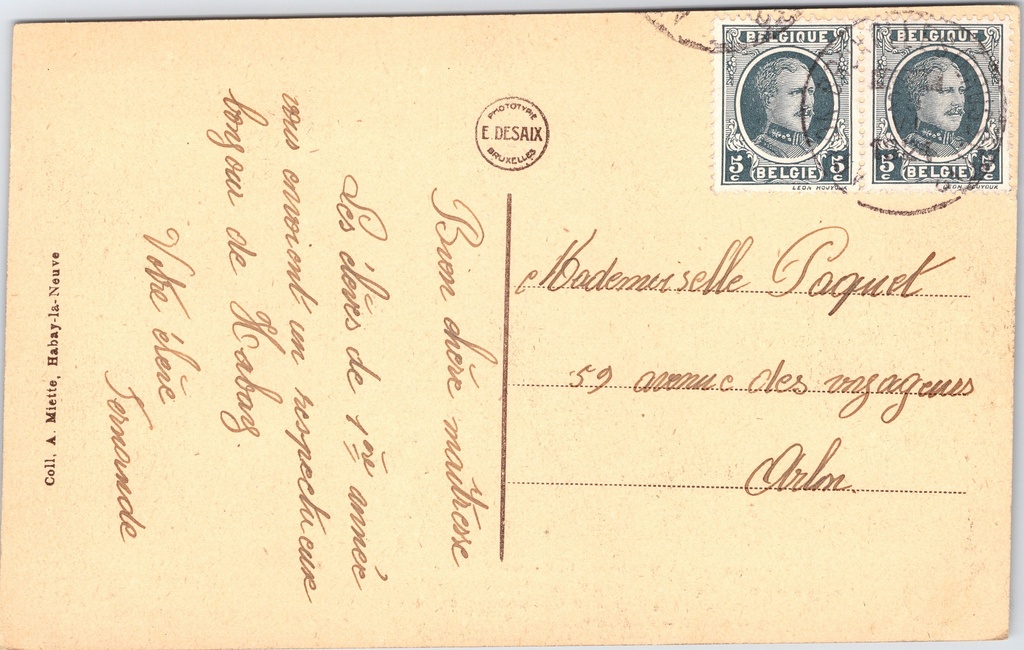 BELGIQUE
5c 5c
BELGIE
LEON HOUYOUX
BELGIQUE
5c 5c
BELGIE
LEON HOUYOUX
PHOTOTYPIE
E. DESAIX
BRUXELLES
Bien chère maîtresse
Les élèves de 1ère année
vous envoient un respectueux
bonjour de Habay.
Votre élève
Fernande
Mademoiselle Paquet
59 avenue des voyageurs
Arlon.
Coll. A. Miette, Habay-la-Neuve